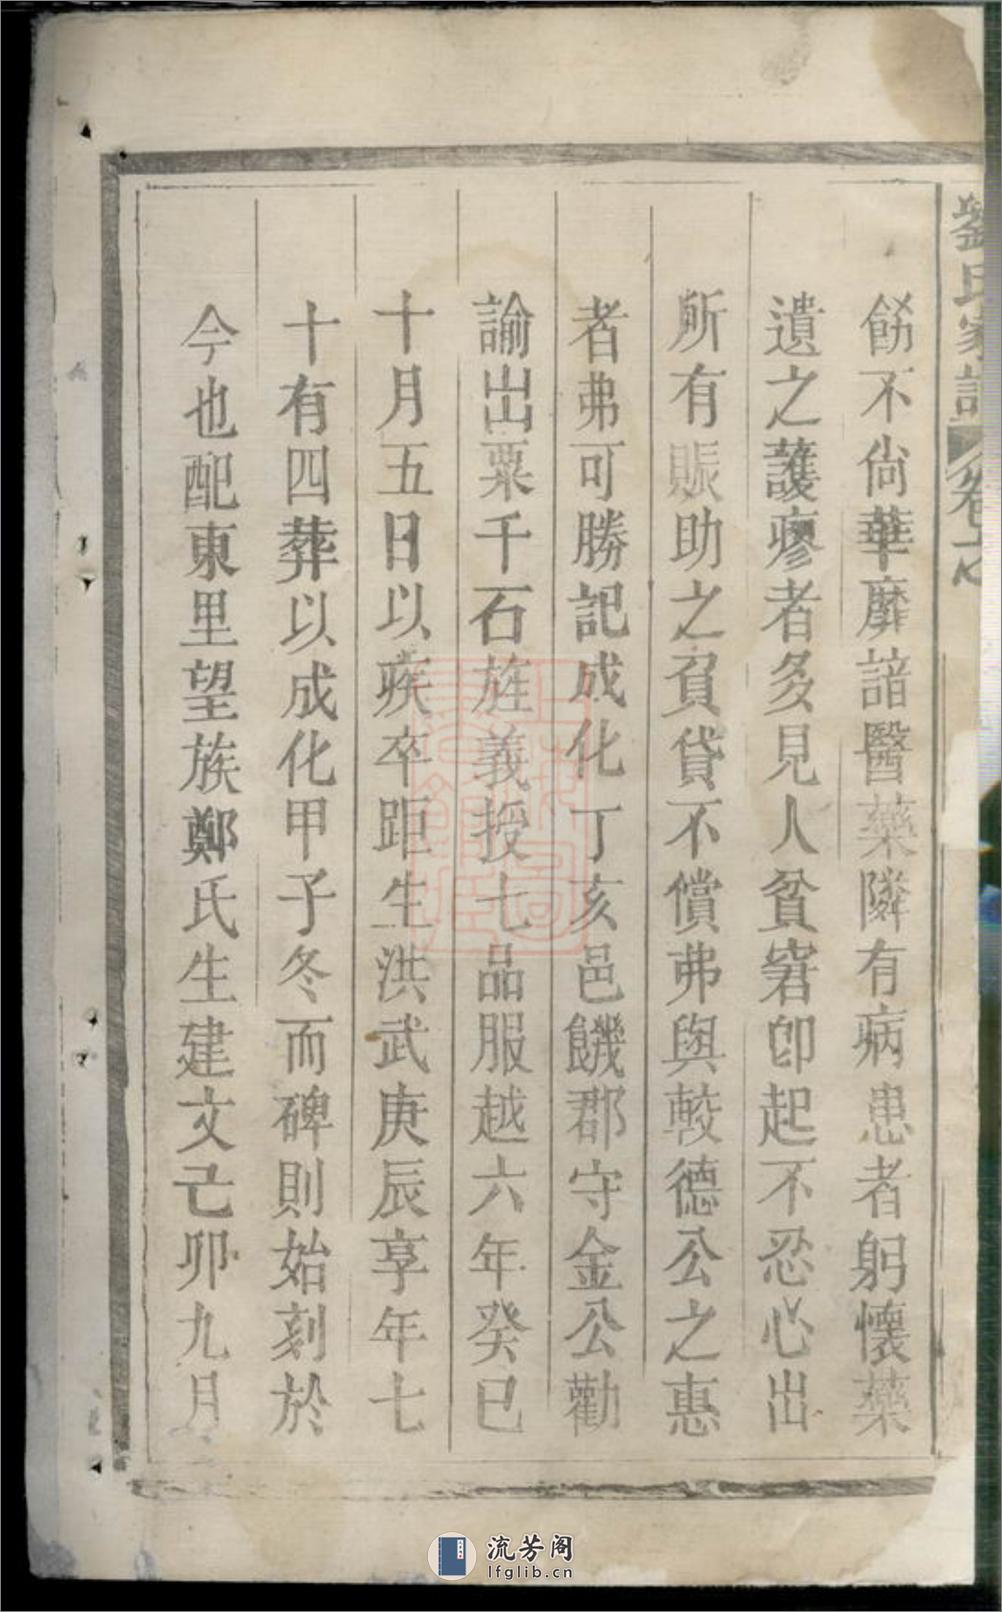 劉氏家譜 卷七
餝不尚華靡諳醫藥隣有病患者躬懷藥
遺之䕶瘳者多見人貧窘卽起不忍心出
所有賬助之負貸不償弗與較德公之惠
者弗可勝記成化丁亥邑饑郡守金公勸
諭出粟千石旌義授七品服越六年癸巳
十月五日以疾卒距生洪武庚辰享年七
十有四葬以成化甲子冬而碑則始刻於
今也配東里望族鄭氏生建文己卯九月
流芳阁
lfglib.cn